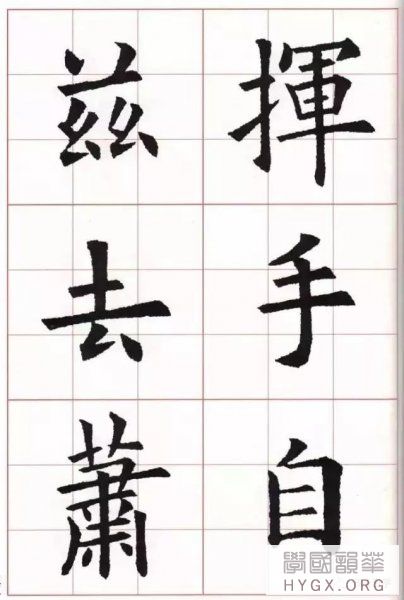 揮手自
茲去蕭
學國韻華
HYGX.ORG